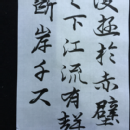 復遊於赤壁
之下江流有聲
斷岸千尺